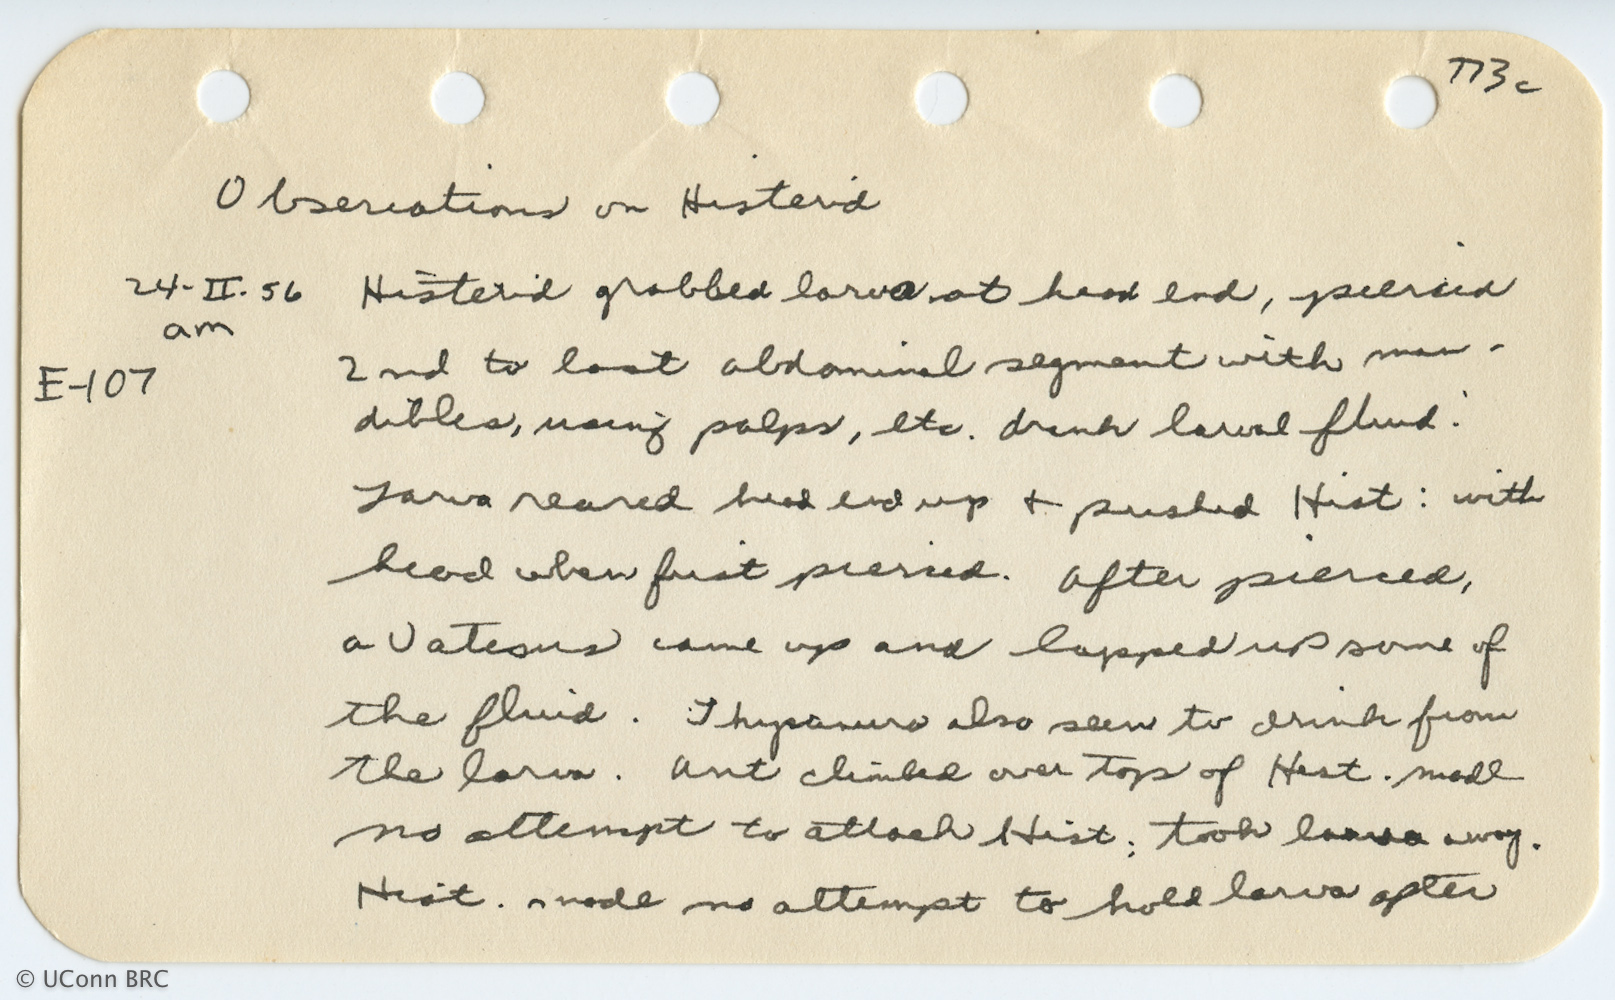 773c
Observations on Histerid
24-II.56 Histerid grabbed larva at head end, pierced
am
E-107 2nd to last abdominal segment with man-
dibles, using palps, etc. drank larval fluid.
Larva reared head end up + pushed Hist: with
head when first pierced. After pierced,
a Vatesus came up and lapped up some of
the fluid. Thysanura also seen to drink from
the larva. Ant climbed over top of Hist. made
no attempt to attack Hist; took larva away.
Hist. made no attempt to hold larva after
© UConn BRC